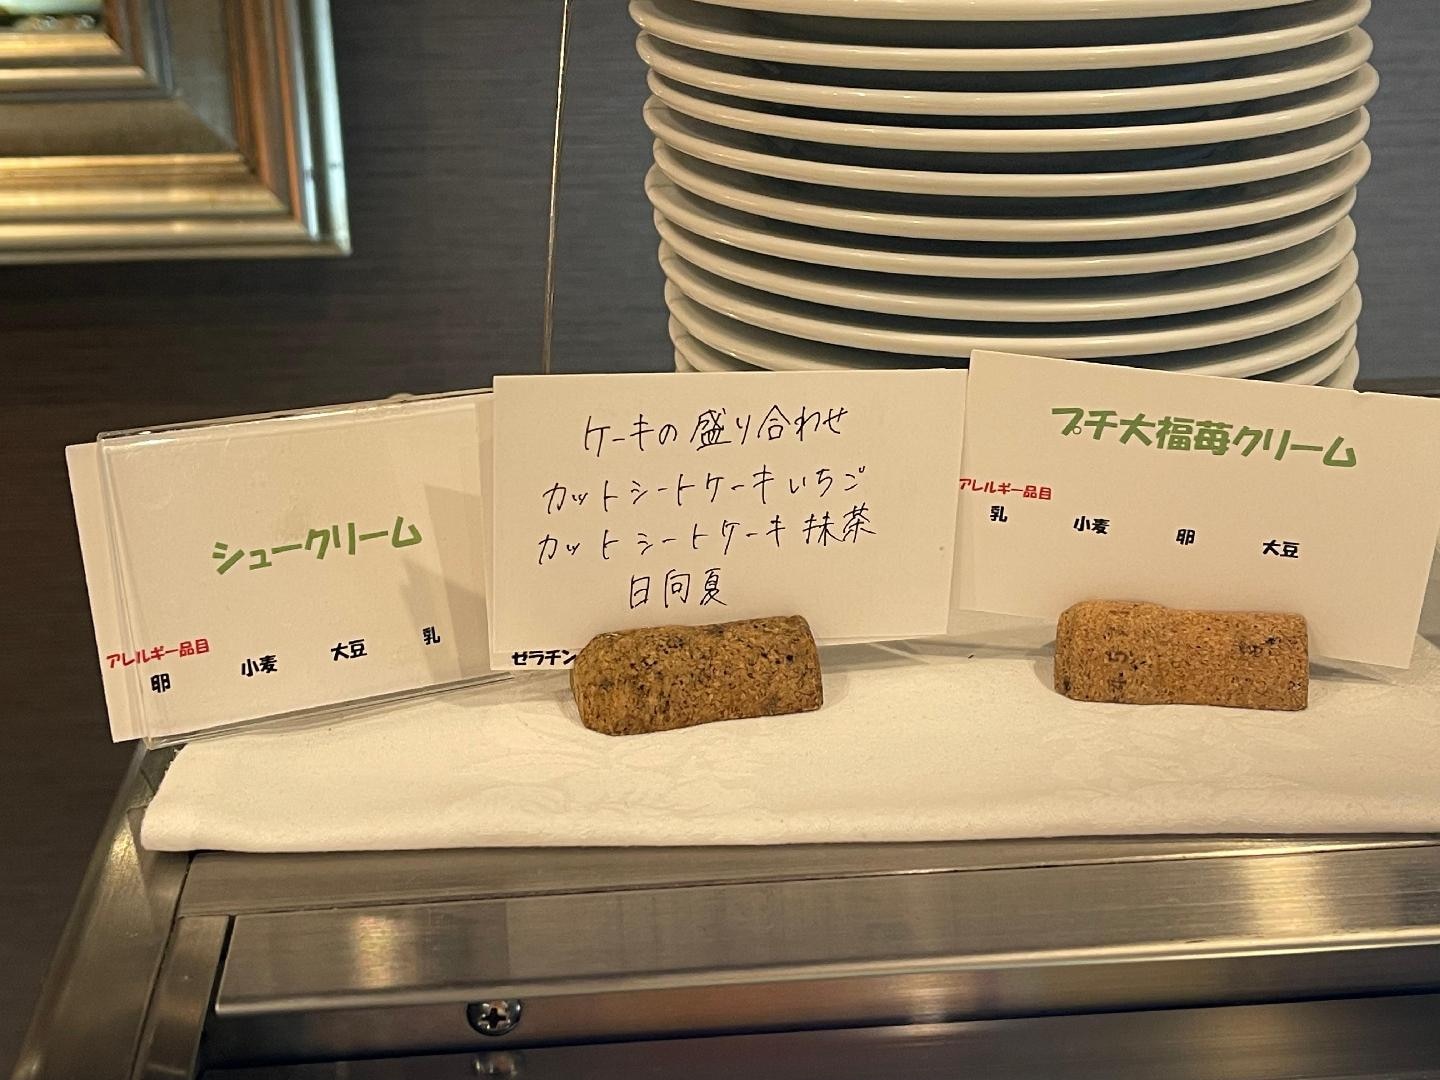 シュークリーム
アレルギー品目
卵 小麦 大豆 乳
ケーキの盛り合わせ
カットシートケーキいちご
カットシートケーキ抹茶
日向夏
ゼラチン
プチ大福苺クリーム
アレルギー品目
乳 小麦 卵 大豆